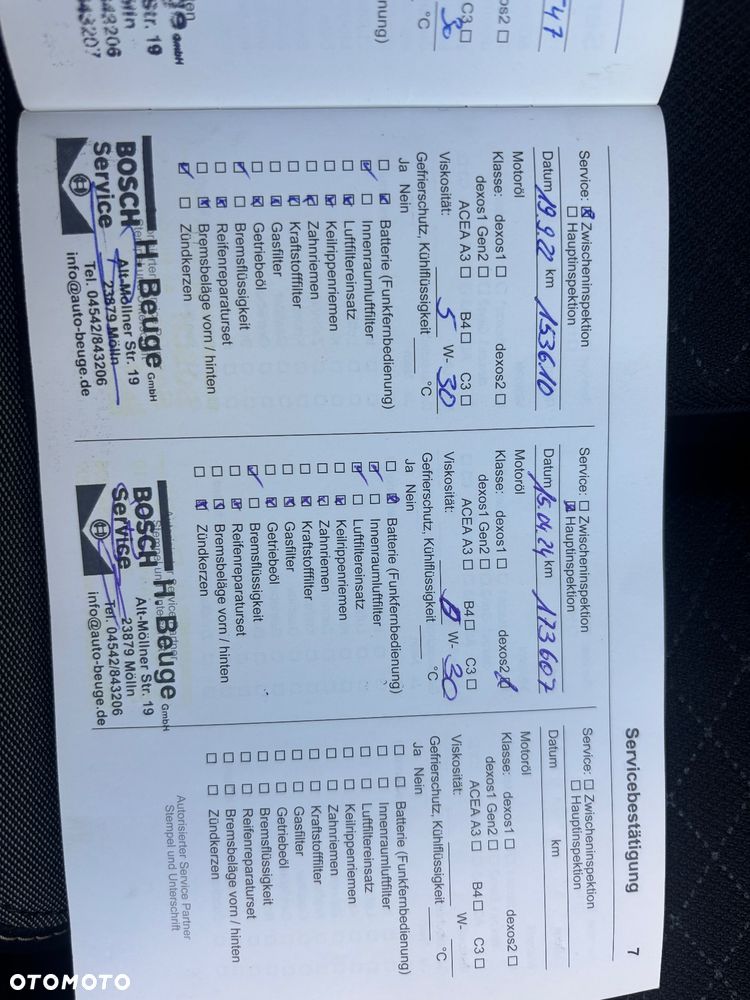 Servicebestätigung
7
Service: ☒ Zwischeninspektion
☐ Hauptinspektion
Datum 19.9.22 km 153610
Motoröl
Klasse: dexos1 ☐ dexos2 ☐
dexos1 Gen2 ☐
ACEA A3 ☐ B4 ☐ C3 ☐
Viskosität: 5 W- 30
Gefrierschutz, Kühlflüssigkeit °C
Ja Nein
☐ ☒ Batterie (Funkfernbedienung)
☑ ☐ Innenraumluftfilter
☐ ☒ Luftfiltereinsatz
☐ ☒ Keilrippenriemen
☐ ☒ Zahnriemen
☐ ☒ Kraftstofffilter
☐ ☒ Gasfilter
☐ ☒ Getriebeöl
☑ ☐ Bremsflüssigkeit
☐ ☒ Reifenreparaturset
☐ ☒ Bremsbeläge vorn / hinten
☑ ☐ Zündkerzen
H. Beuge GmbH
BOSCH
Service
Alt-Möllner Str. 19
23879 Mölln
Tel. 04542/843206
info@auto-beuge.de
Service: ☐ Zwischeninspektion
☒ Hauptinspektion
Datum 15.04.24 km 173607
Motoröl
Klasse: dexos1 ☐ dexos2 ☒
dexos1 Gen2 ☐
ACEA A3 ☐ B4 ☐ C3 ☐
Viskosität: 0 W- 30
Gefrierschutz, Kühlflüssigkeit °C
Ja Nein
☐ ☒ Batterie (Funkfernbedienung)
☑ ☐ Innenraumluftfilter
☑ ☐ Luftfiltereinsatz
☐ ☒ Keilrippenriemen
☐ ☒ Zahnriemen
☐ ☒ Kraftstofffilter
☐ ☒ Gasfilter
☐ ☒ Getriebeöl
☑ ☐ Bremsflüssigkeit
☐ ☒ Reifenreparaturset
☐ ☒ Bremsbeläge vorn / hinten
☐ ☒ Zündkerzen
H. Beuge GmbH
BOSCH
Service
Alt-Möllner Str. 19
23879 Mölln
Tel. 04542/843206
info@auto-beuge.de
Service: ☐ Zwischeninspektion
☐ Hauptinspektion
Datum km
Motoröl
Klasse: dexos1 ☐ dexos2 ☐
dexos1 Gen2 ☐
ACEA A3 ☐ B4 ☐ C3 ☐
Viskosität: W-
Gefrierschutz, Kühlflüssigkeit °C
Ja Nein
☐ ☐ Batterie (Funkfernbedienung)
☐ ☐ Innenraumluftfilter
☐ ☐ Luftfiltereinsatz
☐ ☐ Keilrippenriemen
☐ ☐ Zahnriemen
☐ ☐ Kraftstofffilter
☐ ☐ Gasfilter
☐ ☐ Getriebeöl
☐ ☐ Bremsflüssigkeit
☐ ☐ Reifenreparaturset
☐ ☐ Bremsbeläge vorn / hinten
☐ ☐ Zündkerzen
Autorisierter Service Partner
Stempel und Unterschrift
47
C3
30
°C
GmbH
Str. 19
Mölln
OTOMOTO